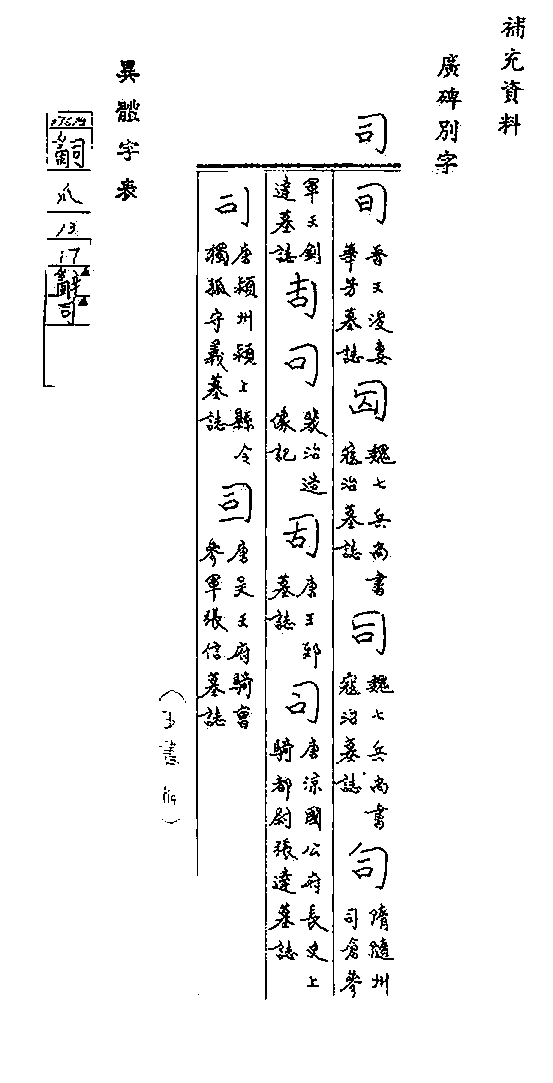 補充資料
廣碑別字
司
司 晉王浚妻華芳墓誌 司 魏七兵尚書寇治墓誌 司 魏七兵尚書寇治墓誌 司 隋隨州司倉參
軍王釗達墓誌 司 裴治造像記 司 唐王郅墓誌 司 唐涼國公府長史上騎都尉張達墓誌
司 唐潁州潁上縣令獨孤守義墓誌 司 唐吳王府騎曹參軍張信墓誌
異體字表
嗣
爪
13
17
辭
司